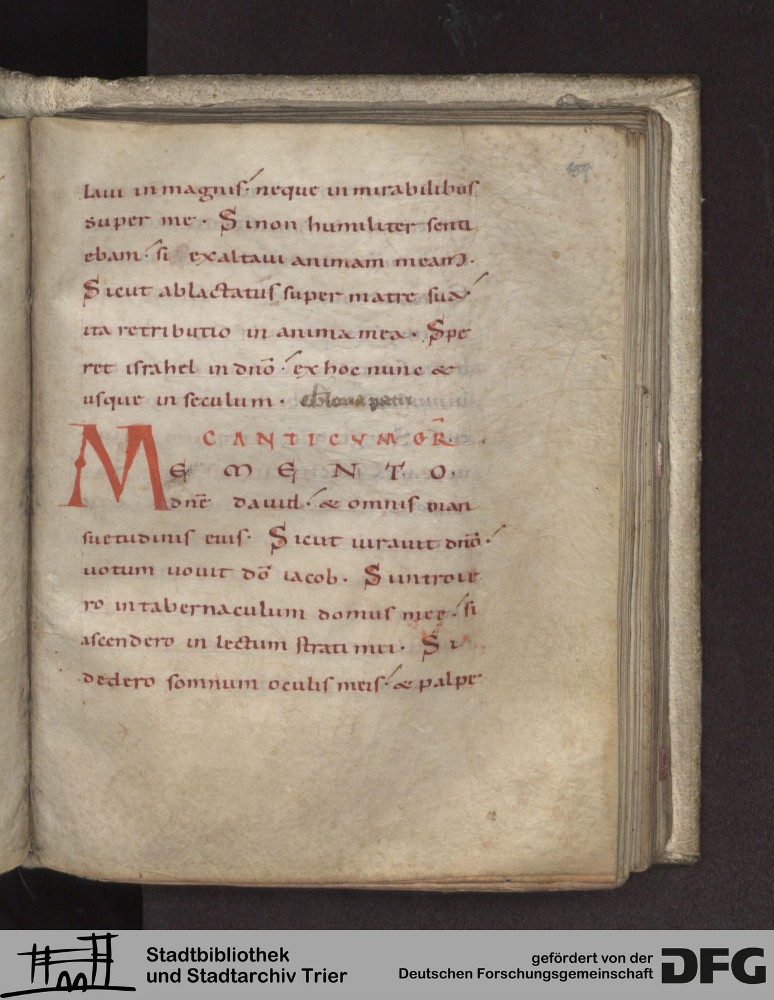 laui in magnis· neque in mirabilibus
super me· Sinon humiliter senti
ebam· si exaltaui animam meam·
Sicut ablactatus super matre sua·
ita retributio in anima mea· Spe
ret israhel in dnō· ex hoc nunc &
usque in seculum·
CANTICUM GR̄
MEMENTO·
dnē dauid· & omnis man
suetudinis eius· Sicut iurauit dnō·
uotum uouit dō iacob· Si introie
ro in tabernaculum domus mee· si
ascendero in lectum strati mei· Si
dedero somnum oculis meis· & palpe
Stadtbibliothek
und Stadtarchiv Trier
gefördert von der
Deutschen Forschungsgemeinschaft
DFG